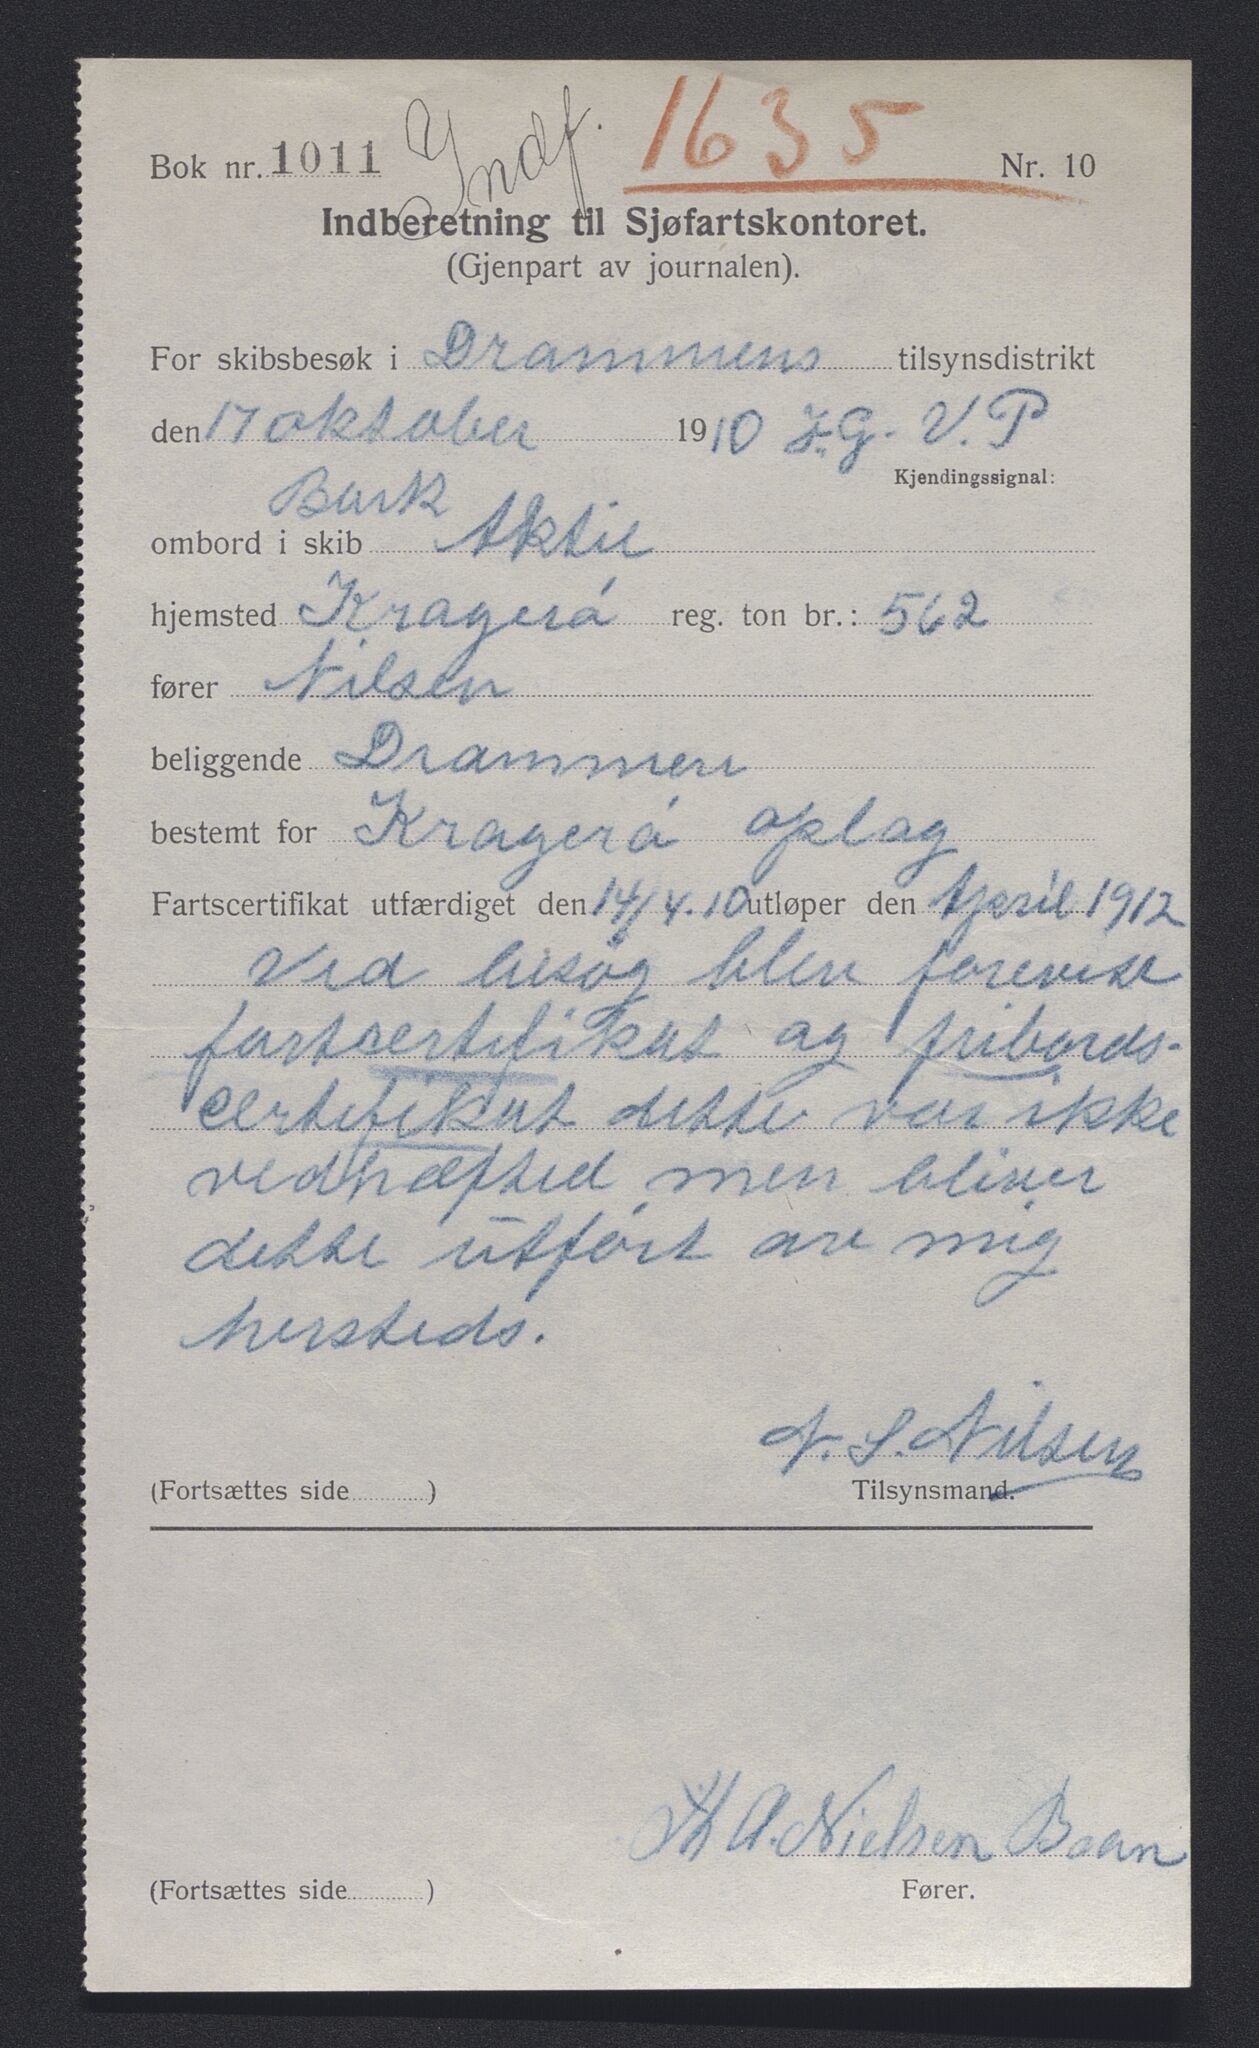 Indf. 1635
Bok nr. 1011 Nr. 10
Indberetning til Sjøfartskontoret.
(Gjenpart av journalen).
For skibsbesøk i Drammens tilsynsdistrikt
den 17 oktober 1910 J.G. V.P
Kjendingssignal:
Bark
ombord i skib Aktiv
hjemsted Kragerø reg. ton br.: 562
fører Nilsen
beliggende Drammen
bestemt for Kragerø oplag
Fartscertifikat utfærdiget den 14/4.10 utløper den April 1912
Ved besøg blev forevist
fartscertifikat og fribords-
certifikat dette var ikke
vedhæfted men bliver
dette utført av mig
hersteds.
N. S. Nilsen
(Fortsættes side ) Tilsynsmand.
Th A. Nielsen Baan
(Fortsættes side ) Fører.